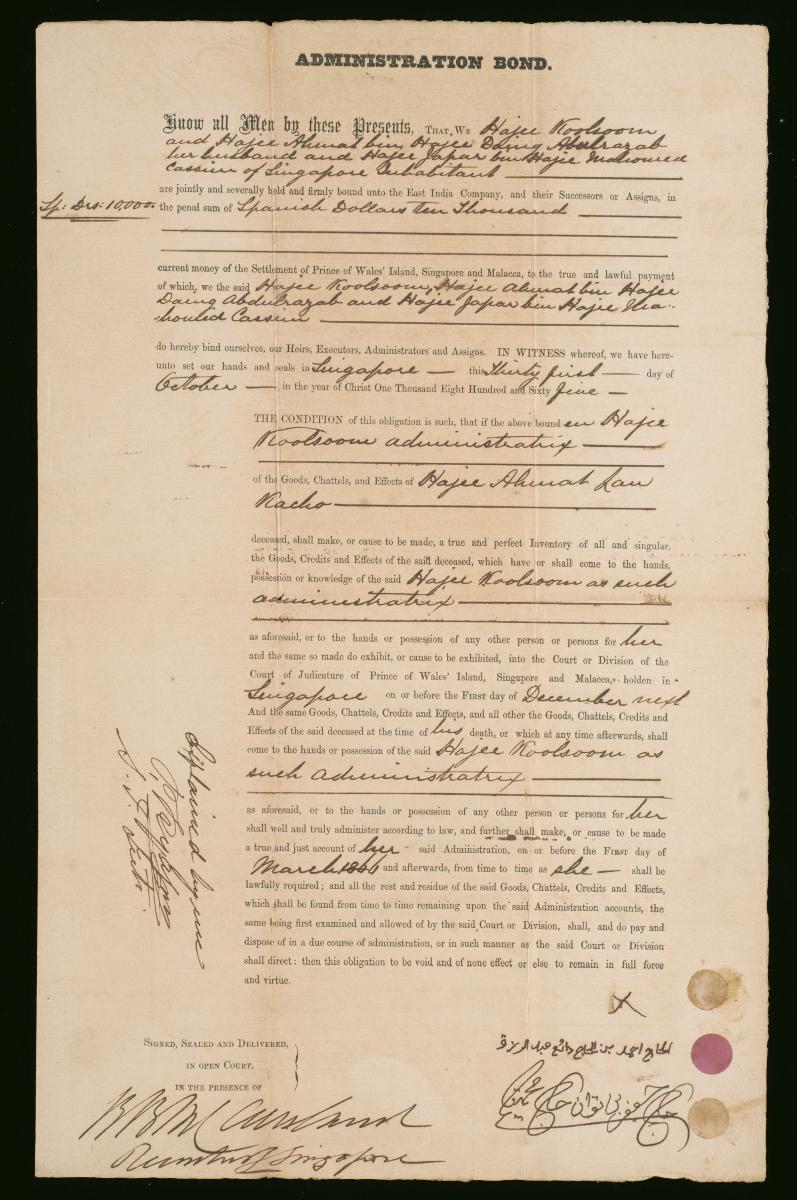 ADMINISTRATION BOND.
Know all Men by these Presents, THAT WE Hajee Koolsoom
and Hajee Ahmat bin Hajee Daing Abdulrazab
her husband and Hajee Japar bin Hajee Mahomed
Cassim of Singapore Inhabitant
are jointly and severally held and firmly bound unto the East India Company, and their Successors or Assigns, in
Sp: Drs: 10,000.
the penal sum of Spanish Dollars ten Thousand
current money of the Settlement of Prince of Wales' Island, Singapore and Malacca, to the true and lawful payment
of which, we the said Hajee Koolsoom, Hajee Ahmat bin Hajee
Daing Abdulrazab and Hajee Japar bin Hajee Ma-
-homed Cassim
do hereby bind ourselves, our Heirs, Executors, Administrators and Assigns. IN WITNESS whereof, we have here-
unto set our hands and seals in Singapore this Thirty first day of
October in the year of Christ One Thousand Eight Hundred and Sixty five
THE CONDITION of this obligation is such, that if the above bound en Hajee
Koolsoom administratrix
of the Goods, Chattels, and Effects of Hajee Ahmat Lau
Kacho
deceased, shall make, or cause to be made, a true and perfect Inventory of all and singular,
the Goods, Credits and Effects of the said deceased, which have or shall come to the hands,
possession or knowledge of the said Hajee Koolsoom as such
administratrix
as aforesaid, or to the hands or possession of any other person or persons for her
and the same so made do exhibit, or cause to be exhibited, into the Court or Division of the
Court of Judicature of Prince of Wales' Island, Singapore and Malacca, holden in
Singapore on or before the FIRST day of December next
And the same Goods, Chattels, Credits and Effects, and all other the Goods, Chattels, Credits and
Effects of the said deceased at the time of his death, or which at any time afterwards, shall
come to the hands or possession of the said Hajee Koolsoom as
such administratrix
as aforesaid, or to the hands or possession of any other person or persons for her
shall well and truly administer according to law, and further shall make, or cause to be made
a true and just account of her said Administration, on or before the FIRST day of
March 1866 and afterwards, from time to time as she shall be
lawfully required; and all the rest and residue of the said Goods, Chattels, Credits and Effects,
which shall be found from time to time remaining upon the said Administration accounts, the
same being first examined and allowed of by the said Court or Division, shall, and do pay and
dispose of in a due course of administration, or in such manner as the said Court or Division
shall direct: then this obligation to be void and of none effect or else to remain in full force
and virtue.
Explained by me
X
SIGNED, SEALED AND DELIVERED,
IN OPEN COURT,
IN THE PRESENCE OF
الحاج احمد بن الحاج دائع عبد الرزاق
Recorder of Singapore